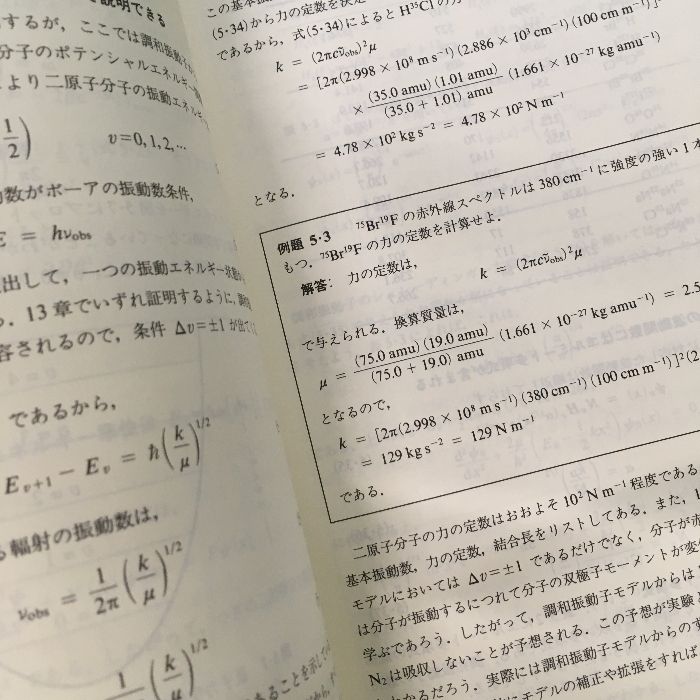 説明できる
するが，ここでは調和振動子
分子のポテンシャルエネルギー
より二原子分子の振動エネルギー
1/2) v=0,1,2,…
動数がボーアの振動数条件，
E = hν_obs
出して，一つの振動エネルギー状態
．13章でいずれ証明するように，
容されるので，条件 Δv=±1 が出て
であるから，
E_{v+1} − E_v = ħ(k/μ)^{1/2}
る輻射の振動数は，
ν_obs = 1/2π (k/μ)^{1/2}
1 (k/μ)^{1/2}
あることを示して
この基本振
(5・34)から力の定数を決定
であるから，式(5・34)によると H³⁵Cl の力
k = (2πcν̃_obs)²μ
= [2π(2.998 × 10⁸ m s⁻¹)(2.886 × 10³ cm⁻¹)(100 cm m⁻¹)]²
× (35.0 amu)(1.01 amu)/(35.0 + 1.01) amu (1.661 × 10⁻²⁷ kg amu⁻¹)
= 4.78 × 10² kg s⁻² = 4.78 × 10² N m⁻¹
となる．
例題 5・3 ⁷⁵Br¹⁹F の赤外線スペクトルは 380 cm⁻¹ に強度の強い 1 本
もつ．⁷⁵Br¹⁹F の力の定数を計算せよ．
解答： 力の定数は，
k = (2πcν̃_obs)²μ
で与えられる．換算質量は，
μ = (75.0 amu)(19.0 amu)/(75.0 + 19.0) amu (1.661 × 10⁻²⁷ kg amu⁻¹) = 2.5
となるので，
k = [2π(2.998 × 10⁸ m s⁻¹)(380 cm⁻¹)(100 cm m⁻¹)]²(2
= 129 kg s⁻² = 129 N m⁻¹
である．
二原子分子の力の定数はおおよそ 10² N m⁻¹ 程度である
基本振動数，力の定数，結合長をリストしてある．また，
モデルにおいては Δv=±1 であるだけでなく，分子が赤
は分子が振動するにつれて分子の双極子モーメントが変
学ぶであろう．したがって，調和振動子モデルからは
N₂は吸収しないことが予想される．この予想が実験と
わかるだろう．実際には調和振動子モデルからのず
モデルの補正や拡張をすれば